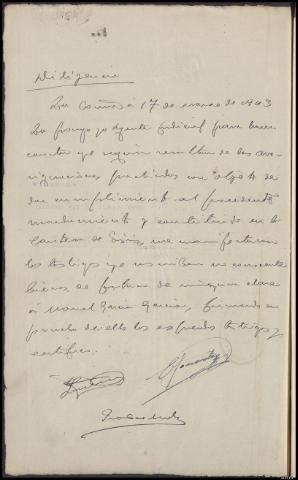 Diligencia
La Coruña a 17 de marzo de 1903
La pongo yo Agente Judicial para hacer
constar que según resulta de las ave-
riguaciones practicadas con objeto de
dar cumplimiento al precedente
mandamiento y constituido en la
me manifestaron
los testigos que suscriben no conocerle
bienes de fortuna de ninguna clase
a Manuel García García, firmando en
prueba de ello los expresados testigos y
certifico.